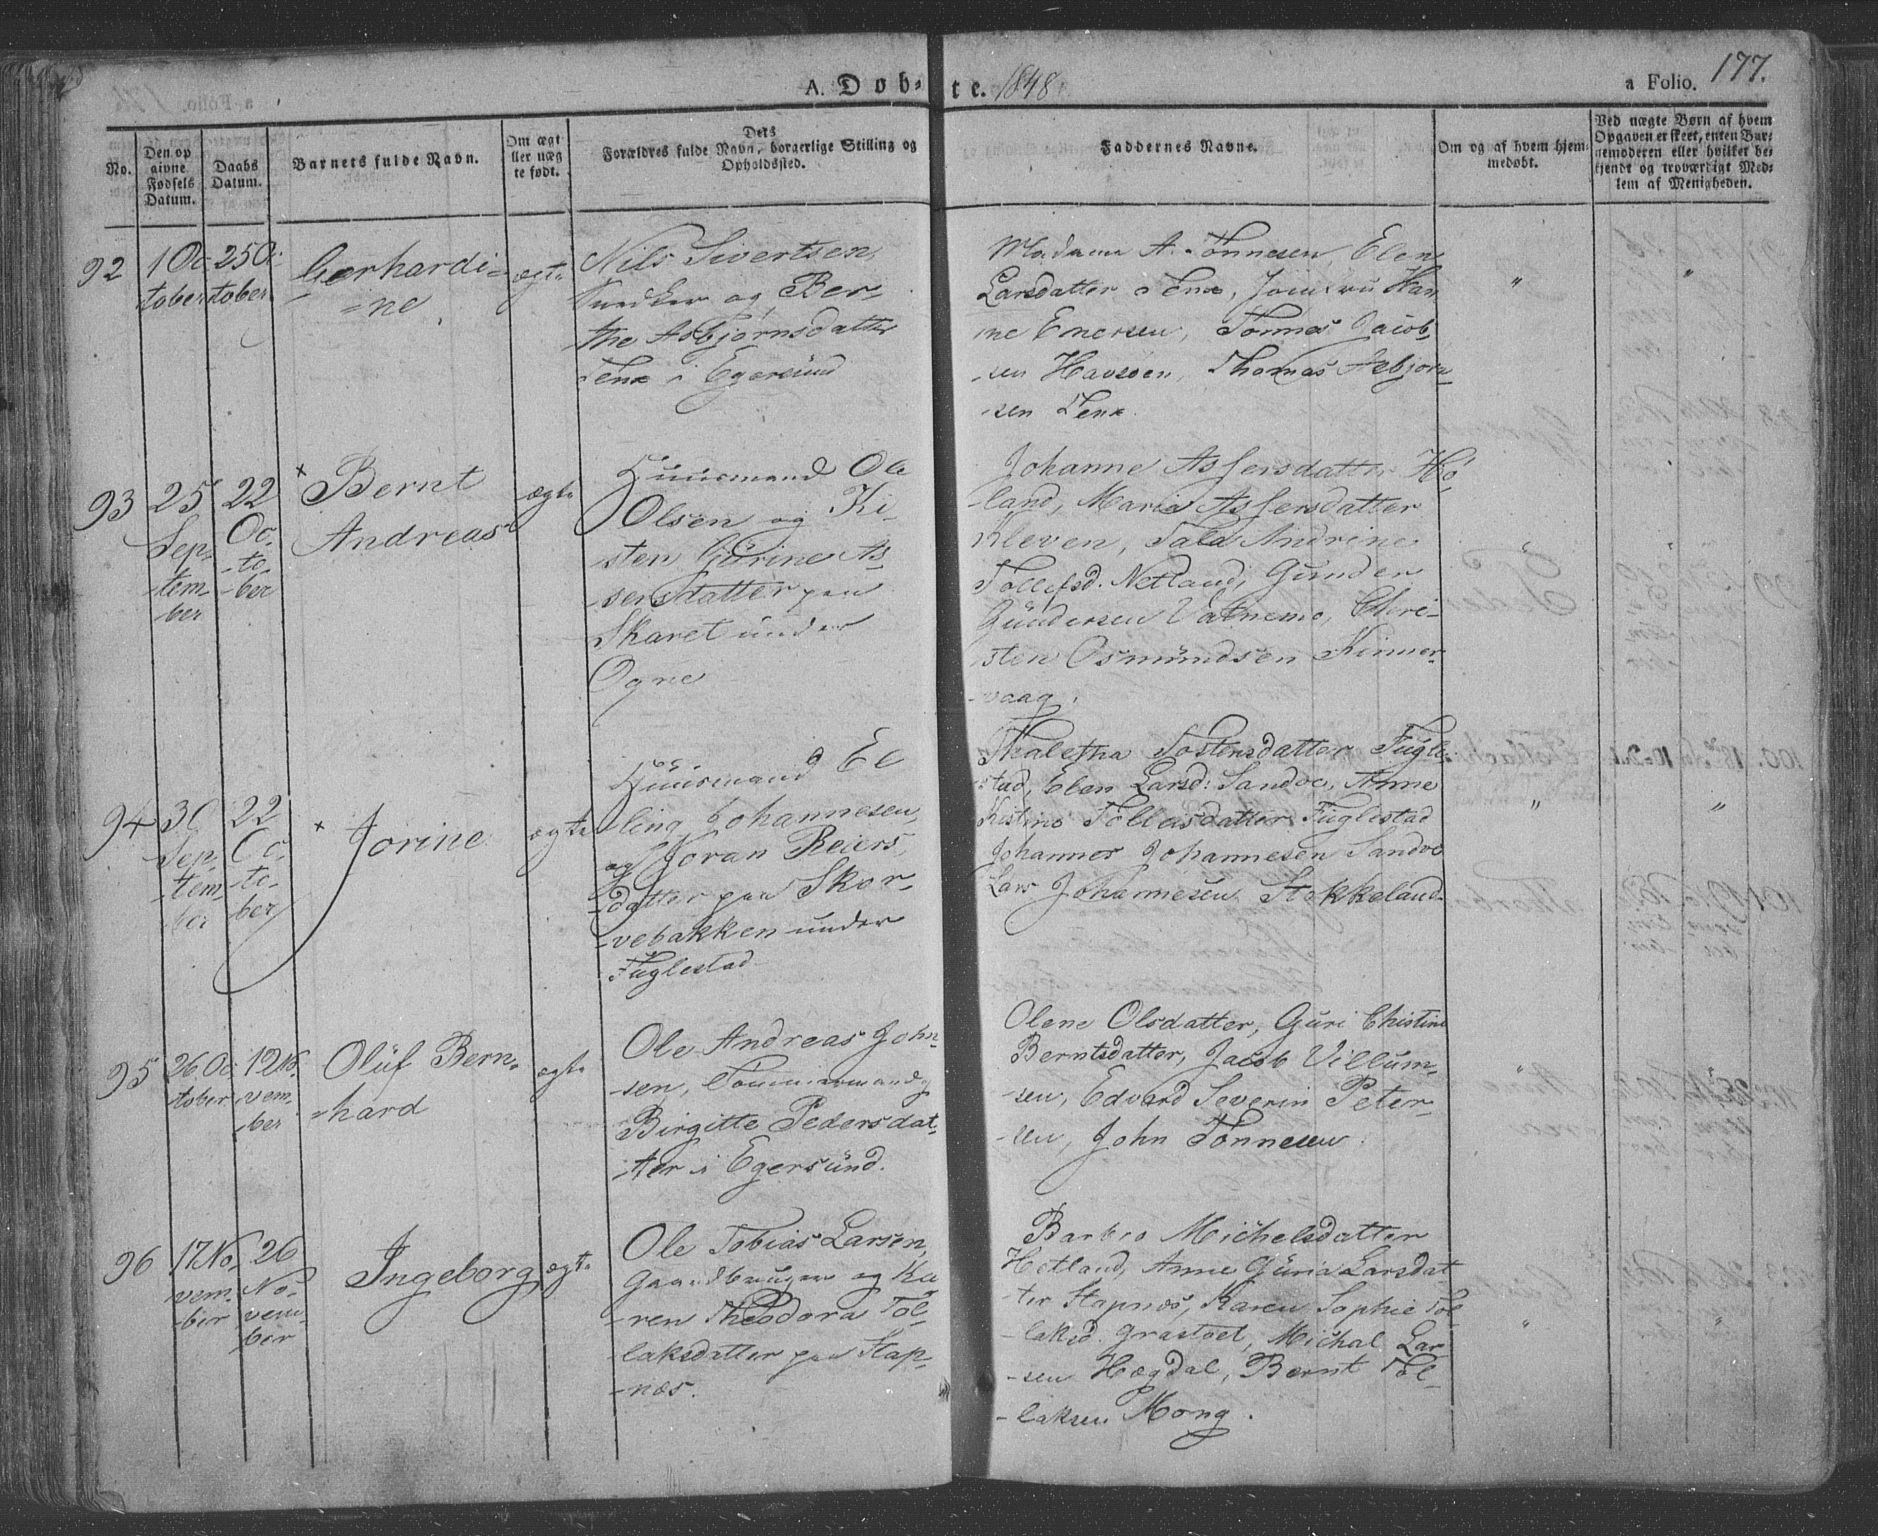 A. Dob-te. 1848. a Folio. 177.
No.
Den op
givne
Fødsels
Datum.
Daabs
Datum.
Barnets fulde Navn.
Om ægt
eller uæg
te født.
Dets
Forældres fulde Navn, borgerlige Stilling og
Opholdssted.
Faddernes Navne.
Om og af hvem hjem-
medøbt.
Ved uægte Børn af hvem
Opgaven er skeet, enten Bar-
nemoderen eller hvilket be-
kjendt og troværdigt Med-
lem af Menigheden.
92
1 Oc
tober
25 Oc
tober
Gerhardi-
=ne
ægte
Nils Sivertsen,
Snedker og Ber-
the Asbjørnsdatter
Tenx i Egersund
Madame A. Tönnesen, Elen
Larsdatter Tenx, Jomfru Han
ne Emersen, Tönnes Jacob-
-sen Havsøen, Thomas Asbjørn
-sen Tenx.
"
"
93
25
Sep-
-tem-
ber
22
Oc-
-to-
-ber
× Bernt
Andreas
ægte
Huusmand Ole
Olsen og Ki-
sten Gürine As
-sersdatter paa
Skaret under
Ogne
Johanne Assersdatter Hö-
-land, Maria Assersdatter
Kleven, Tala Andrine
Tollefsd. Netland, Gunder
Gundersen Vatnemo, Chri-
sten Osmundsen Kinner-
-vaag.
94
30
Sep-
tem-
ber
22
Oc-
to-
ber
× Jorine
ægte
Huusmand El
-ling Johannesen,
og Joran Reiers-
-datter paa Skor-
-vebakken under
Fuglestad
Thaletha Tostensdatter Fugle-
-stad, Elen Larsd: Sandve, Anne
Kistine Tolleisdatter Fuglestad
Johannes Johannesen Sandve
Lars Johannesen Stokkeland.
"
"
95
26 Oc
tober
12 No-
vem-
ber
Oluf Bern-
=hard
ægte
Ole Andreas John-
sen, Tömmermand og
Birgitte Pedersdat-
-ter i Egersund.
Olene Olsdatter, Guri Chistine
Berntsdatter, Jacob Villum-
-sen, Edvard Severin Peter-
-sen, John Tönnesen.
"
96
17 No-
vem-
-ber
26
No-
vem-
ber
Ingeborg
ægte
Ole Tobias Larsen,
Gaardbruger og Ka
-ren Theodora Tol
laksdatter paa Stap-
-næs.
Barbro Michelsdatter
Hetland, Anne Guria Larsdat
-ter Stapnæs, Karen Sophie Tol-
-laksd. Grastvet, Michal Lar-
-sen Hægdal, Bernt Tol-
-laksen Mong.
"
"